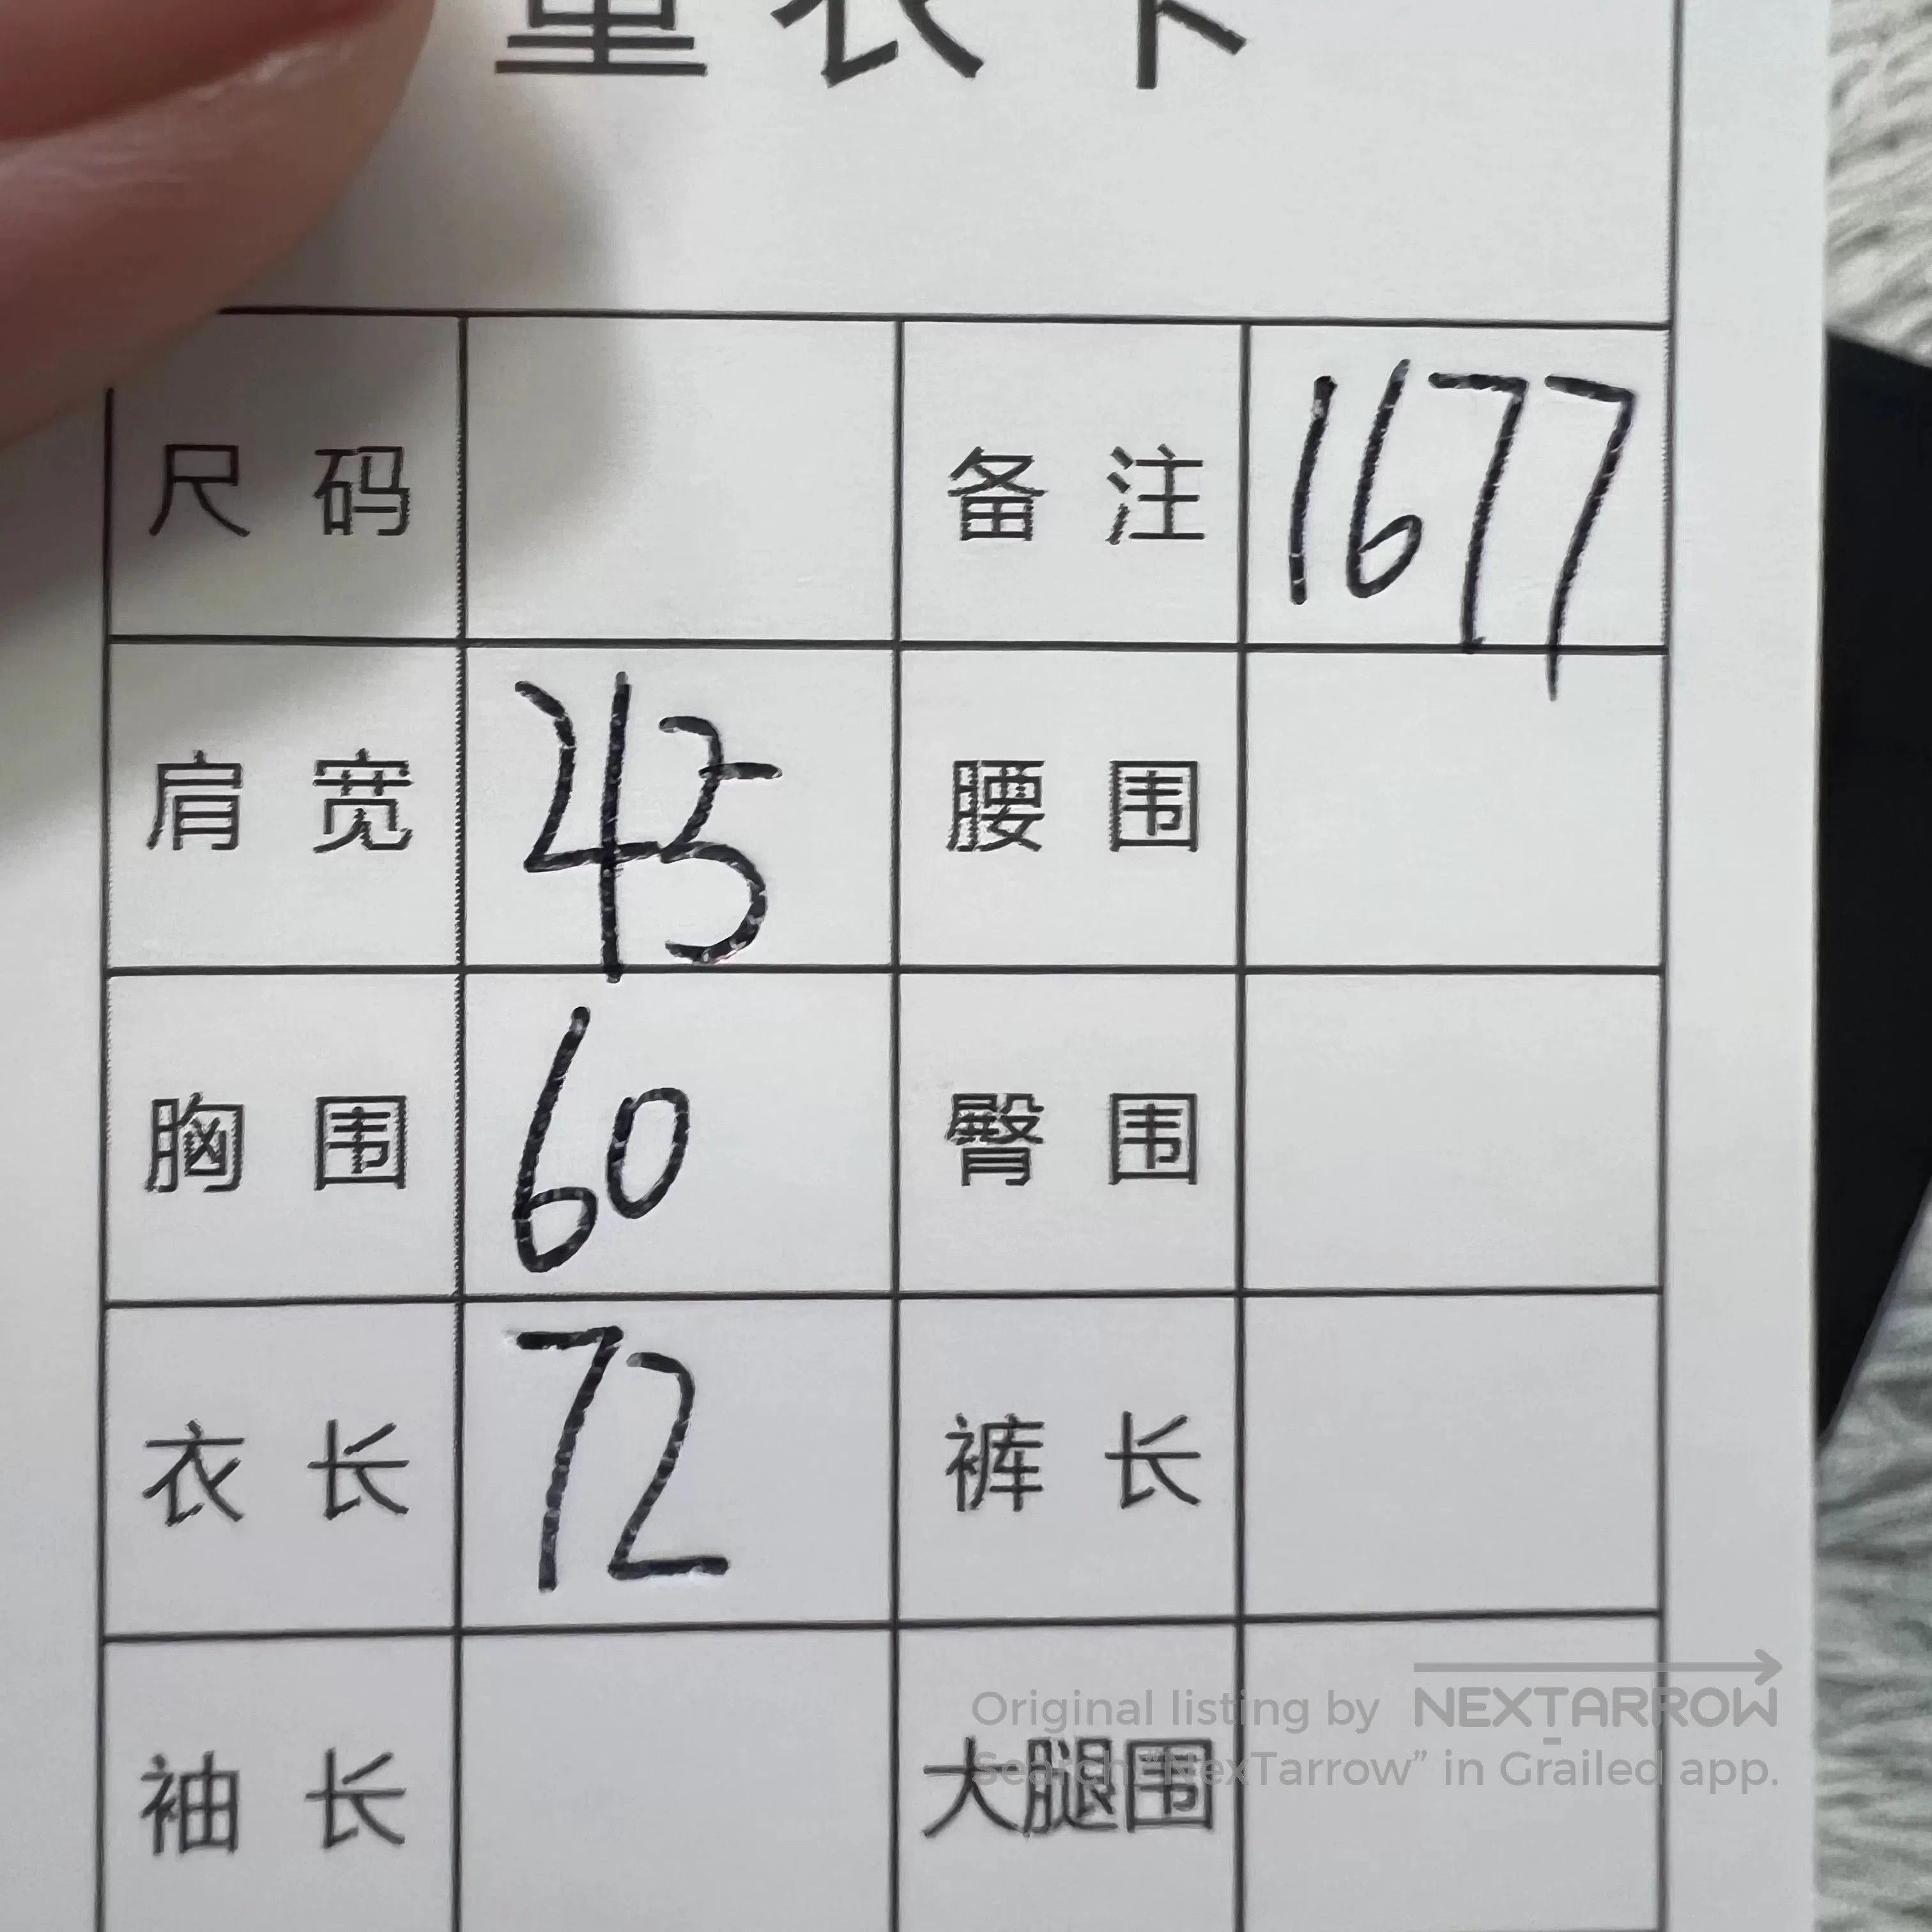 量衣卡
尺码 备注 1677
肩宽 45 腰围
胸围 60 臀围
衣长 72 裤长
袖长 大腿围
Original listing by NEXTARROW
Search "NexTarrow" in Grailed app.